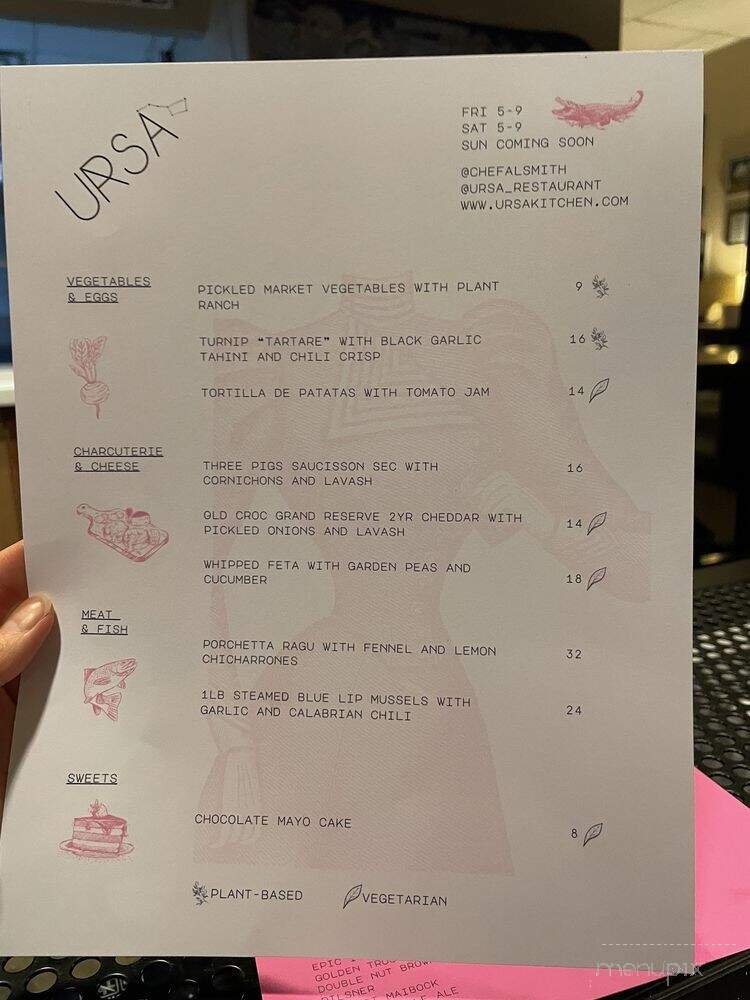 URSA
FRI 5-9
SAT 5-9
SUN COMING SOON
@CHEFALSMITH
@URSA_RESTAURANT
WWW.URSAKITCHEN.COM
VEGETABLES
& EGGS
PICKLED MARKET VEGETABLES WITH PLANT 9
RANCH
TURNIP “TARTARE” WITH BLACK GARLIC 16
TAHINI AND CHILI CRISP
TORTILLA DE PATATAS WITH TOMATO JAM 14
CHARCUTERIE
& CHEESE
THREE PIGS SAUCISSON SEC WITH 16
CORNICHONS AND LAVASH
OLD CROC GRAND RESERVE 2YR CHEDDAR WITH 14
PICKLED ONIONS AND LAVASH
WHIPPED FETA WITH GARDEN PEAS AND 18
CUCUMBER
MEAT
& FISH
PORCHETTA RAGU WITH FENNEL AND LEMON 32
CHICHARRONES
1LB STEAMED BLUE LIP MUSSELS WITH 24
GARLIC AND CALABRIAN CHILI
SWEETS
CHOCOLATE MAYO CAKE 8
PLANT-BASED VEGETARIAN
EPIC
GOLDEN
DOUBLE NUT BROWN
PILSNER
MAIBOCK
ALE
menupix